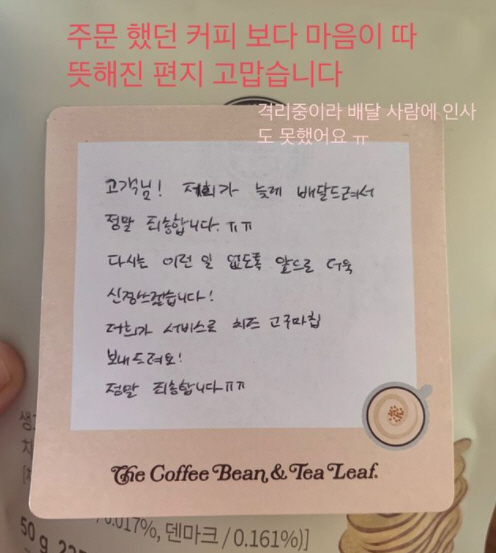 주문 했던 커피 보다 마음이 따
뜻해진 편지 고맙습니다
격리중이라 배달 사람에 인사
도 못했어요 ㅠ
고객님! 저희가 늦게 배달드려서
정말 죄송합니다. ㅠㅠ
다시는 이런 일 없도록 앞으로 더욱
신경쓰겠습니다!
저희가 서비스로 치즈 고구마칩
보내드려요!
정말 죄송합니다ㅠㅠ
The Coffee Bean & Tea Leaf.
0.017%, 덴마크/0.161%)]
50 g